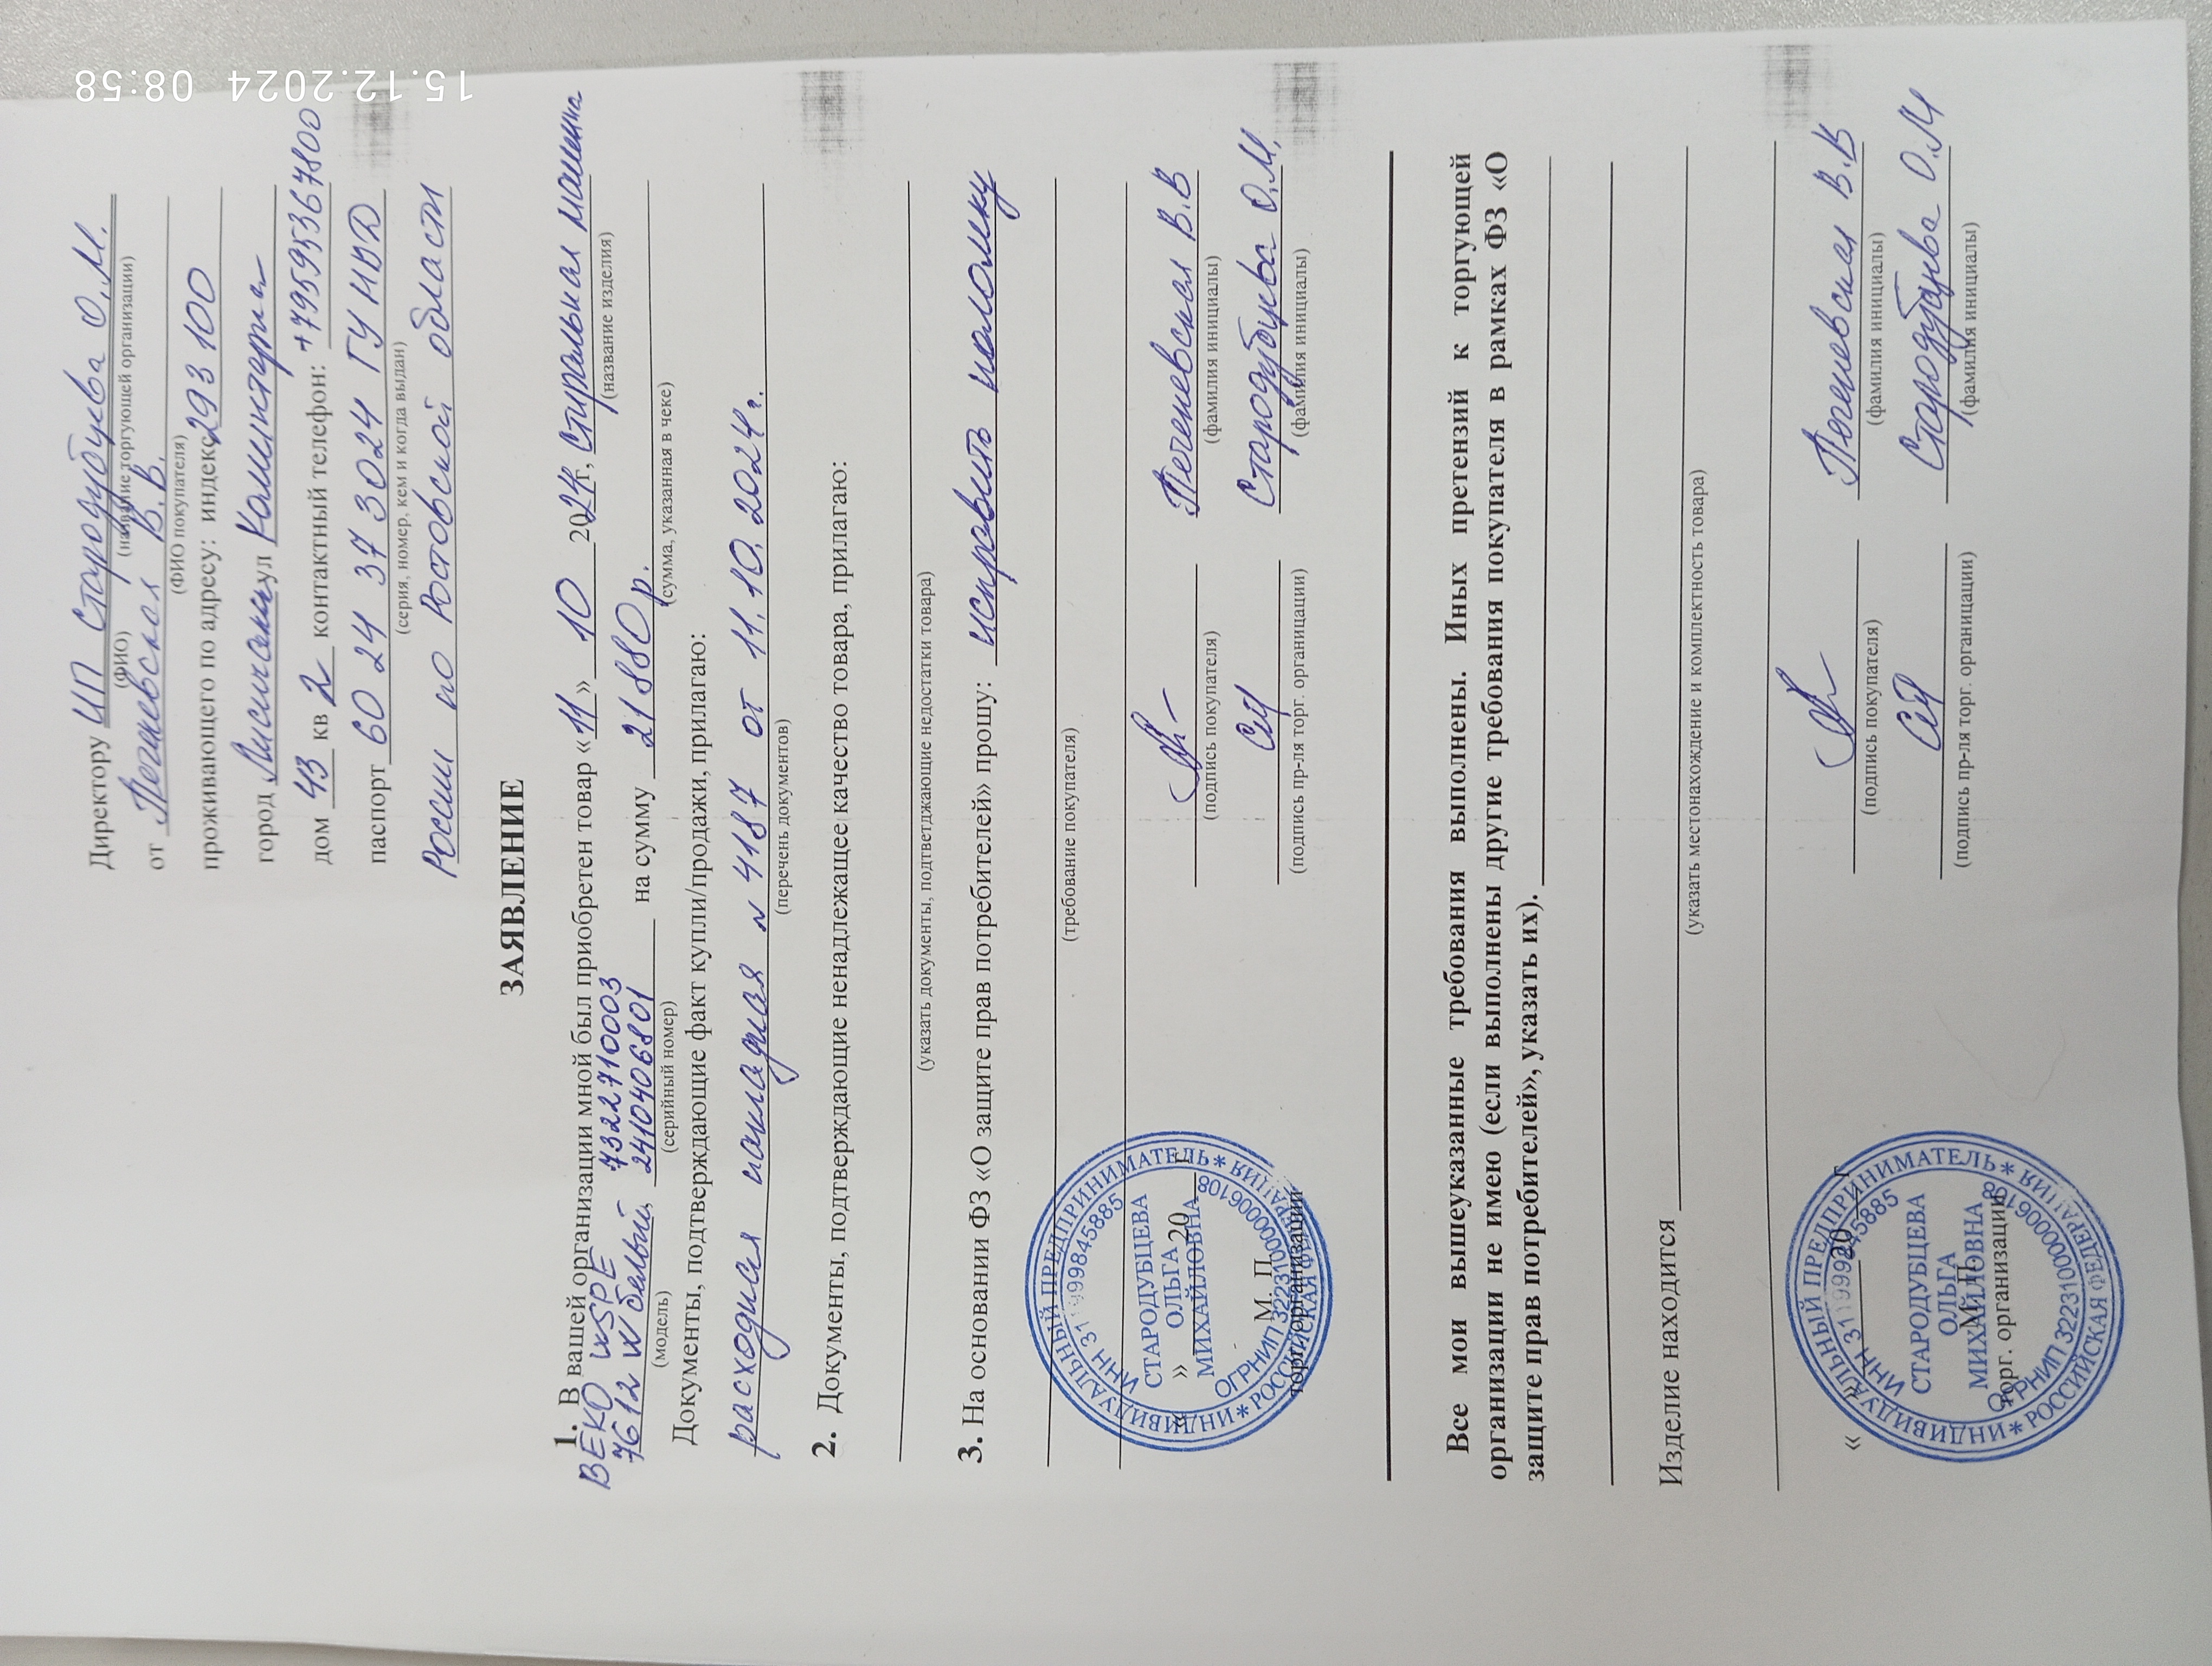 15.12.2024 08:58
Директору ИП Стародубцева О.М.
(ФИО) (название торгующей организации)
от Печеневская В.В.
(ФИО покупателя)
проживающего по адресу: индекс 293100
город Лисичанск ул Коминтерна
дом 43 кв 2 контактный телефон: +79595367800
паспорт 60 24 373024 ГУ МВД
(серия, номер, кем и когда выдан)
России по Ростовской области
ЗАЯВЛЕНИЕ
1. В вашей организации мной был приобретен товар «11» 10 2024г, Стиральная машина
(название изделия)
BEKO WSPE 7322710003
7612 W белый, 2410406801 на сумму 21880р.
(модель) (серийный номер) (сумма, указанная в чеке)
Документы, подтверждающие факт купли/продажи, прилагаю:
расходная накладная N 4187 от 11.10.2024г.
(перечень документов)
2. Документы, подтверждающие ненадлежащее качество товара, прилагаю:
(указать документы, подтветджающие недостатки товара)
3. На основании ФЗ «О защите прав потребителей» прошу: исправить поломку
(требование покупателя)
« » 20 г
Печеневская В.В
(подпись покупателя) (фамилия инициалы)
М. П.
Стародубцева О.М.
торг. организации
(подпись пр-ля торг. организации) (фамилия инициалы)
ИНДИВИДУАЛЬНЫЙ ПРЕДПРИНИМАТЕЛЬ * РОССИЙСКАЯ ФЕДЕРАЦИЯ *
СТАРОДУБЦЕВА
ОЛЬГА
МИХАЙЛОВНА
Все мои вышеуказанные требования выполнены. Иных претензий к торгующей
организации не имею (если выполнены другие требования покупателя в рамках ФЗ «О
защите прав потребителей», указать их).
Изделие находится
(указать местонахождение и комплектность товара)
« 20 г
Печеневская В.В
(подпись покупателя) (фамилия инициалы)
М. П.
Стародубцева О.М
торг. организации
(подпись пр-ля торг. организации) (фамилия инициалы)
ИНДИВИДУАЛЬНЫЙ ПРЕДПРИНИМАТЕЛЬ * РОССИЙСКАЯ ФЕДЕРАЦИЯ *
СТАРОДУБЦЕВА
ОЛЬГА
МИХАЙЛОВНА